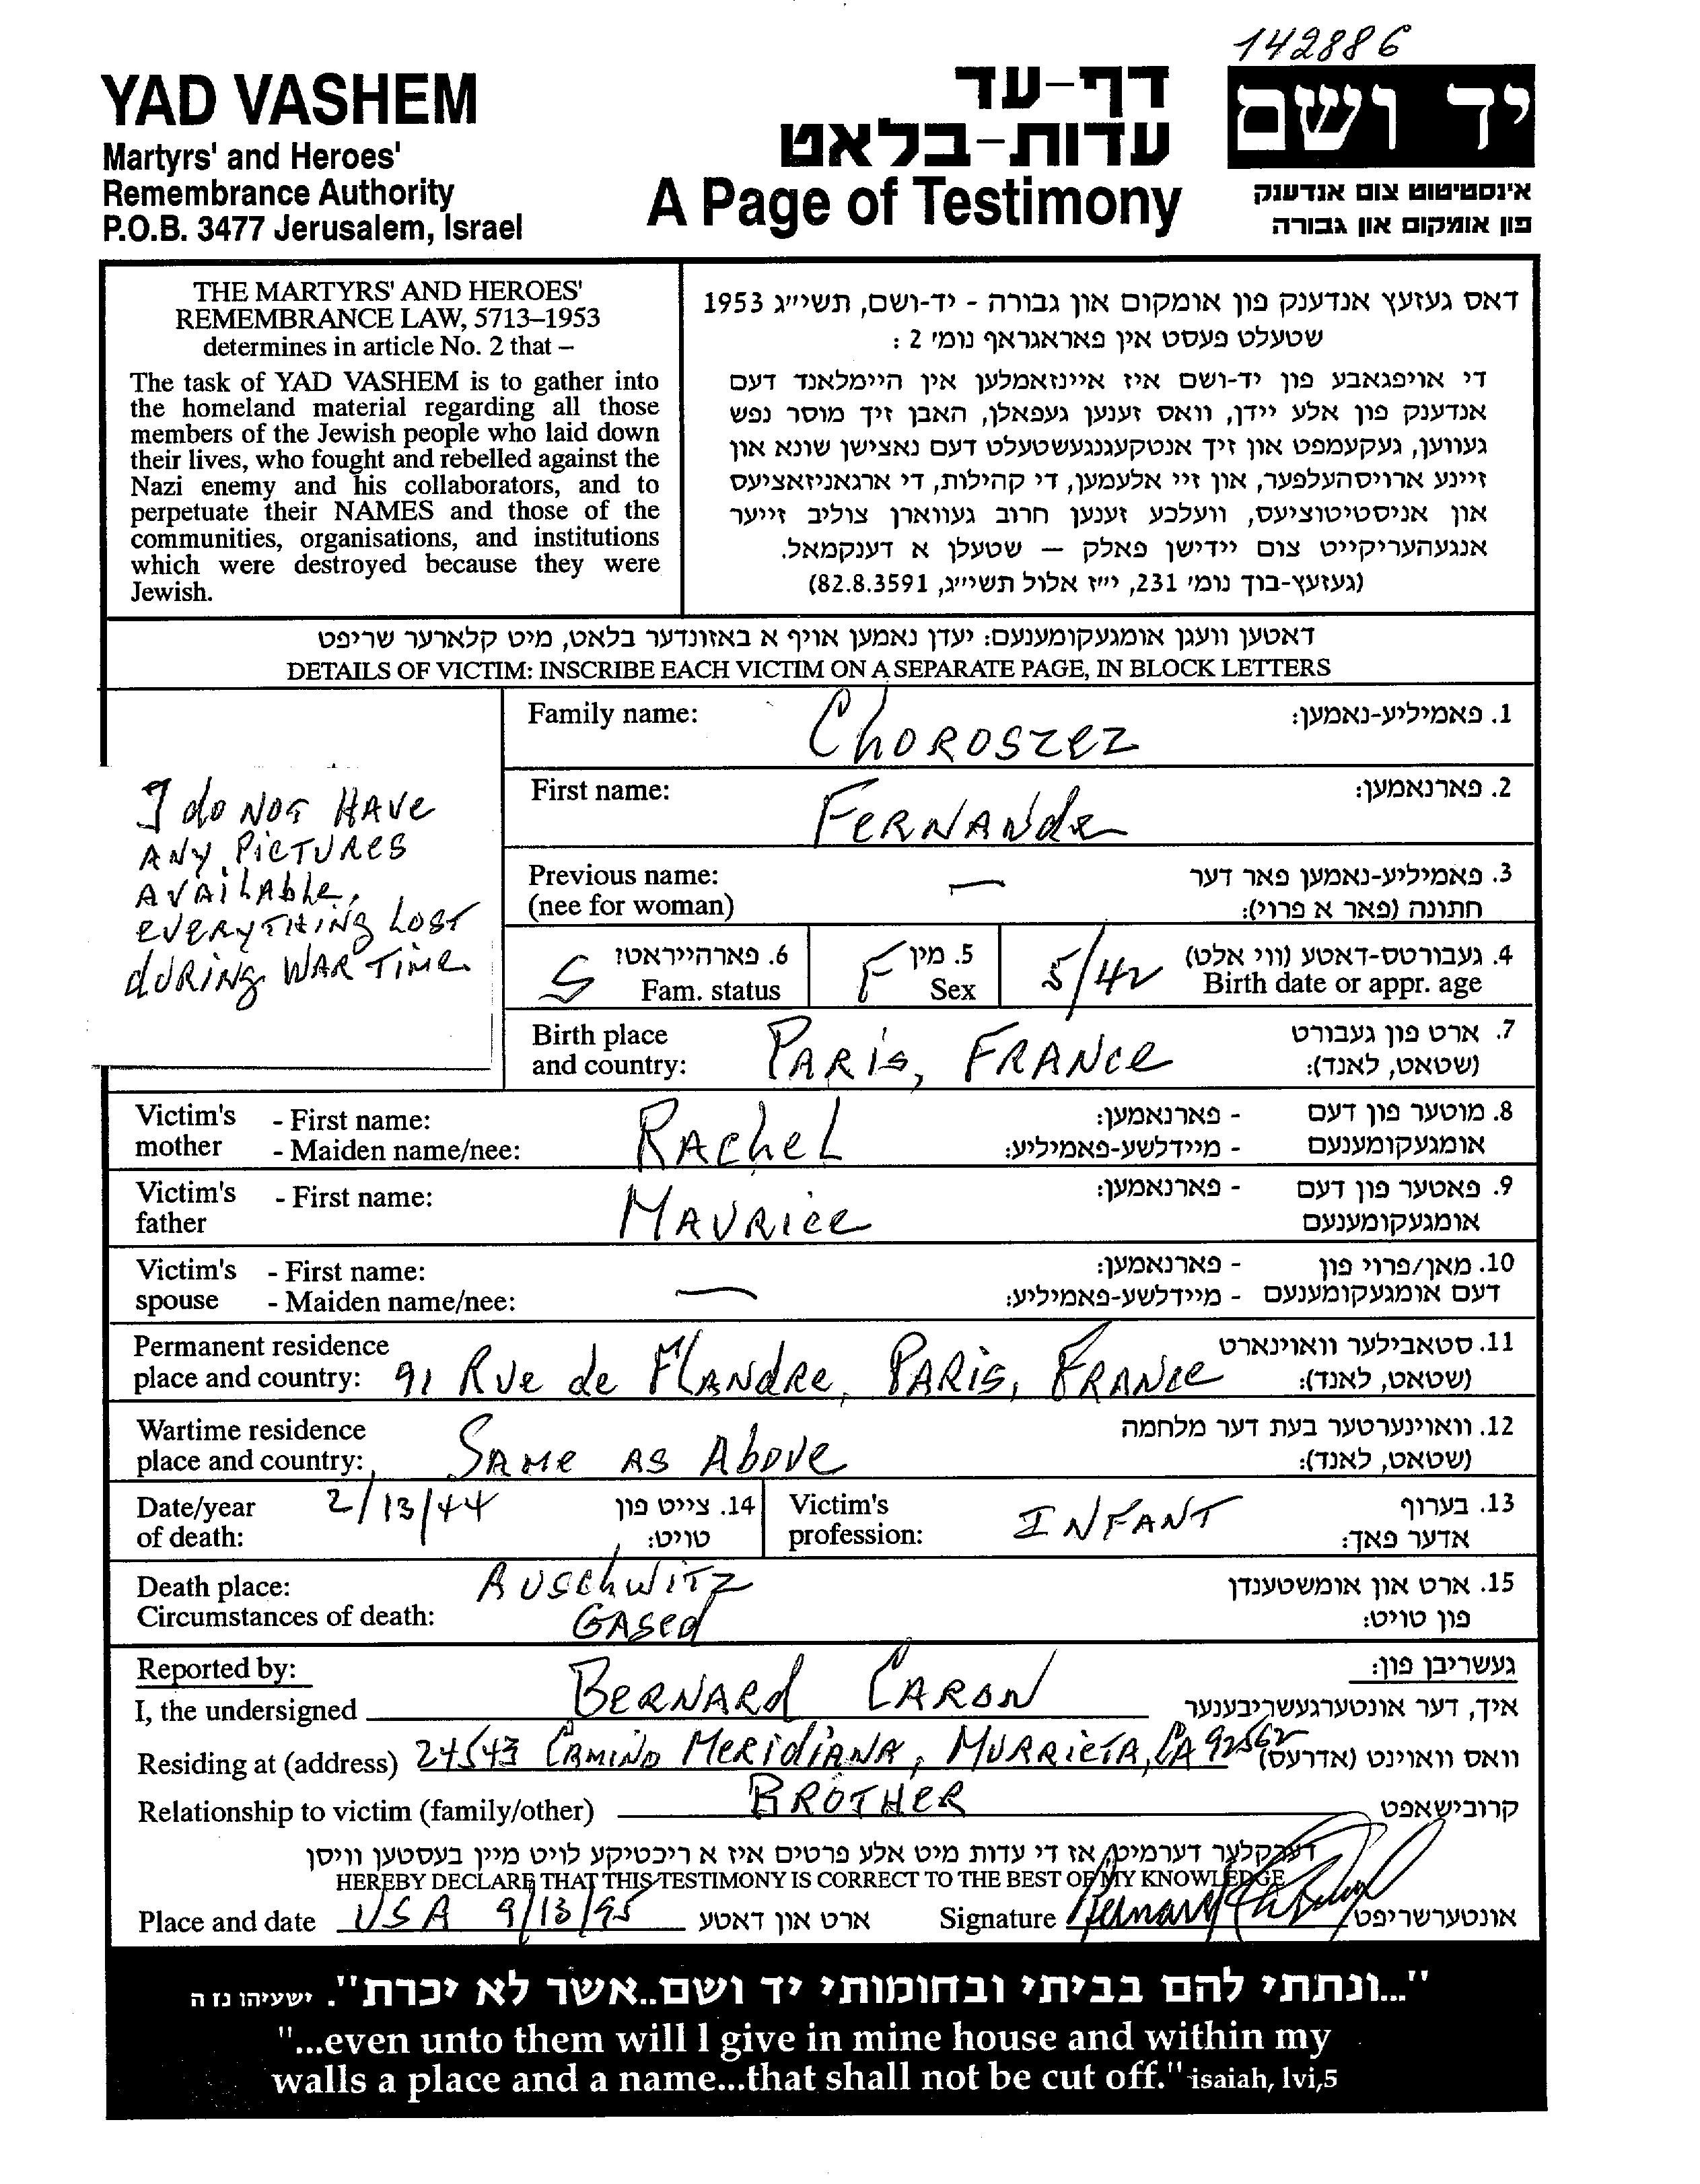 142886
YAD VASHEM
Martyrs' and Heroes'
Remembrance Authority
P.O.B. 3477 Jerusalem, Israel
דף-עד
עדות-בלאט
A Page of Testimony
יד ושם
אינסטיטוט צום אנדענק
פון אומקום און גבורה
THE MARTYRS' AND HEROES'
REMEMBRANCE LAW, 5713–1953
determines in article No. 2 that –
The task of YAD VASHEM is to gather into
the homeland material regarding all those
members of the Jewish people who laid down
their lives, who fought and rebelled against the
Nazi enemy and his collaborators, and to
perpetuate their NAMES and those of the
communities, organisations, and institutions
which were destroyed because they were
Jewish.
דאס געזעץ אנדענק פון אומקום און גבורה - יד-ושם, תשי״ג 1953
שטעלט פעסט אין פאראגראף נומ׳ 2 :
די אויפגאבע פון יד-ושם איז איינזאמלען אין היימלאנד דעם
אנדענק פון אלע יידן, וואס זענען געפאלן, האבן זיך מוסר נפש
געווען, געקעמפט און זיך אנטקעגנגעשטעלט דעם נאצישן שונא און
זיינע ארויסהעלפער, און זיי אלעמען, די קהילות, די ארגאניזאציעס
און אניסטיטוציעס, וועלכע זענען חרוב געווארן צוליב זייער
אנגעהעריקייט צום יידישן פאלק — שטעלן א דענקמאל.
(געזעץ-בוך נומ׳ 231, י״ז אלול תשי״ג, 82.8.3591)
דאטען וועגן אומגעקומענעם: יעדן נאמען אויף א באזונדער בלאט, מיט קלארער שריפט
DETAILS OF VICTIM: INSCRIBE EACH VICTIM ON A SEPARATE PAGE, IN BLOCK LETTERS
I do NOT HAVE
ANY PICTURES
AVAILABLE,
EVERYTHING LOST
dURING WAR TIME
Family name: CHOROSZEZ 1. פאמיליע-נאמען:
First name: FERNANde 2. פארנאמען:
Previous name: — 3. פאמיליע-נאמען פאר דער
(nee for woman) חתונה (פאר א פרוי):
S 6. פארהייראט? F 5. מין 5/42 4. געבורטס-דאטע (ווי אלט)
Fam. status Sex Birth date or appr. age
Birth place PARIS, FRANCE 7. ארט פון געבורט
and country: (שטאט, לאנד):
Victim's - First name: RACHEL - פארנאמען: 8. מוטער פון דעם
mother - Maiden name/nee: - מיידלשע-פאמיליע: אומגעקומענעם
Victim's - First name: MAURICE - פארנאמען: 9. פאטער פון דעם
father אומגעקומענעם
Victim's - First name: — - פארנאמען: 10. מאן/פרוי פון
spouse - Maiden name/nee: - מיידלשע-פאמיליע: דעם אומגעקומענעם
Permanent residence 11. סטאבילער וואוינארט
place and country: 91 Rue de FLANdRE, PARIS, FRANCE (שטאט, לאנד):
Wartime residence 12. וואוינערטער בעת דער מלחמה
place and country: SAME AS Above (שטאט, לאנד):
Date/year 2/13/44 14. צייט פון Victim's INFANT 13. בערוף
of death: טויט: profession: אדער פאך:
Death place: AUSCHWITZ 15. ארט און אומשטענדן
Circumstances of death: GASEd פון טויט:
Reported by: געשריבן פון:
I, the undersigned BERNARd CARON איך, דער אונטערגעשריבענער
Residing at (address) 24543 CAMINO MERIdIANA, MURRIETA, CA 92562 וואס וואוינט (אדרעס)
Relationship to victim (family/other) BROTHER קרובישאפט
דערקלער דערמיט, אז די עדות מיט אלע פרטים איז א ריכטיקע לויט מיין בעסטען וויסן
HEREBY DECLARE THAT THIS TESTIMONY IS CORRECT TO THE BEST OF MY KNOWLEDGE
Place and date USA 9/13/95 ארט און דאטע Signature אונטערשריפט
"...ונתתי להם בביתי ובחומותי יד ושם..אשר לא יכרת". ישעיהו נז ה
"...even unto them will I give in mine house and within my
walls a place and a name...that shall not be cut off." isaiah, lvi,5